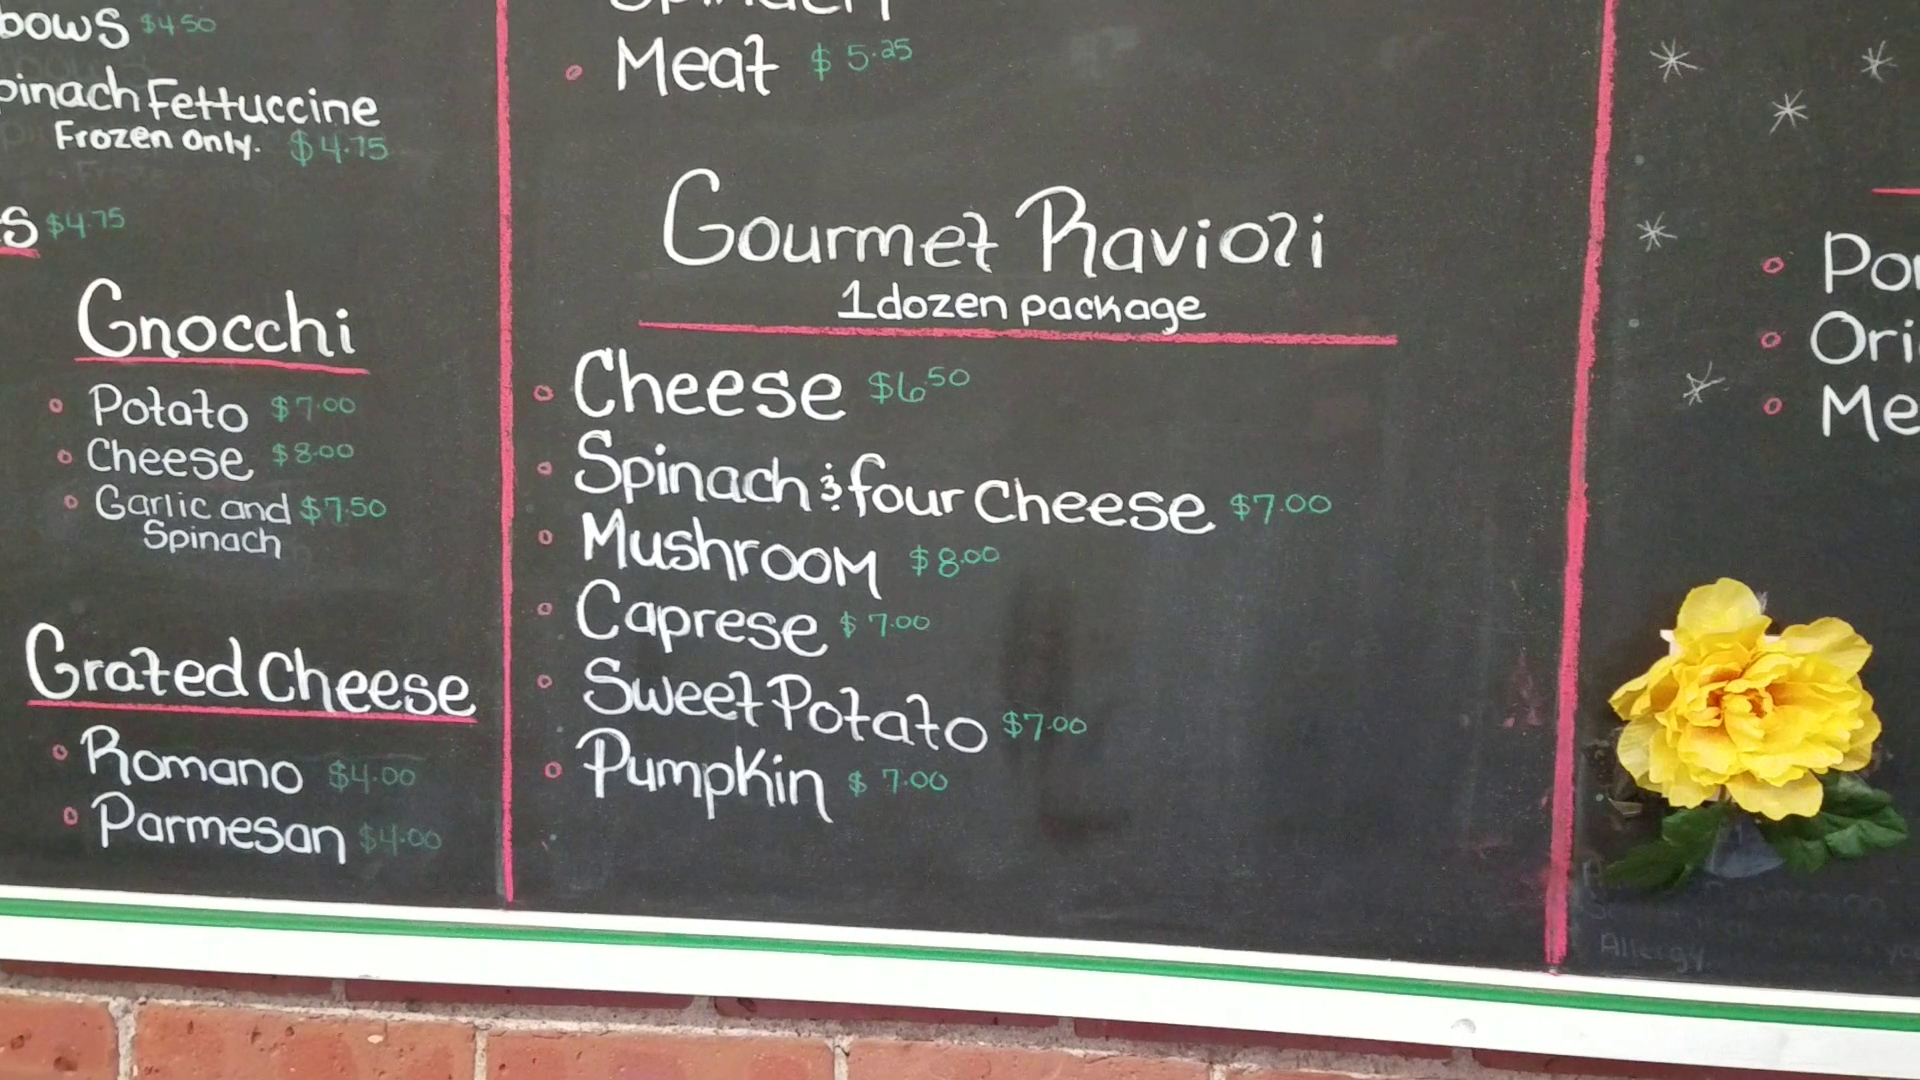 bows $4.50
pinach Fettuccine
Frozen only. $4.75
s $4.75
Gnocchi
Potato $7.00
Cheese $8.00
Garlic and $7.50
Spinach
Grated Cheese
Romano $4.00
Parmesan $4.00
Spinach
Meat $5.25
Gourmet Ravioli
1 dozen package
Cheese $6.50
Spinach & four Cheese $7.00
Mushroom $8.00
Caprese $7.00
Sweet Potato $7.00
Pumpkin $7.00
Por
Ori
Me
Allergy